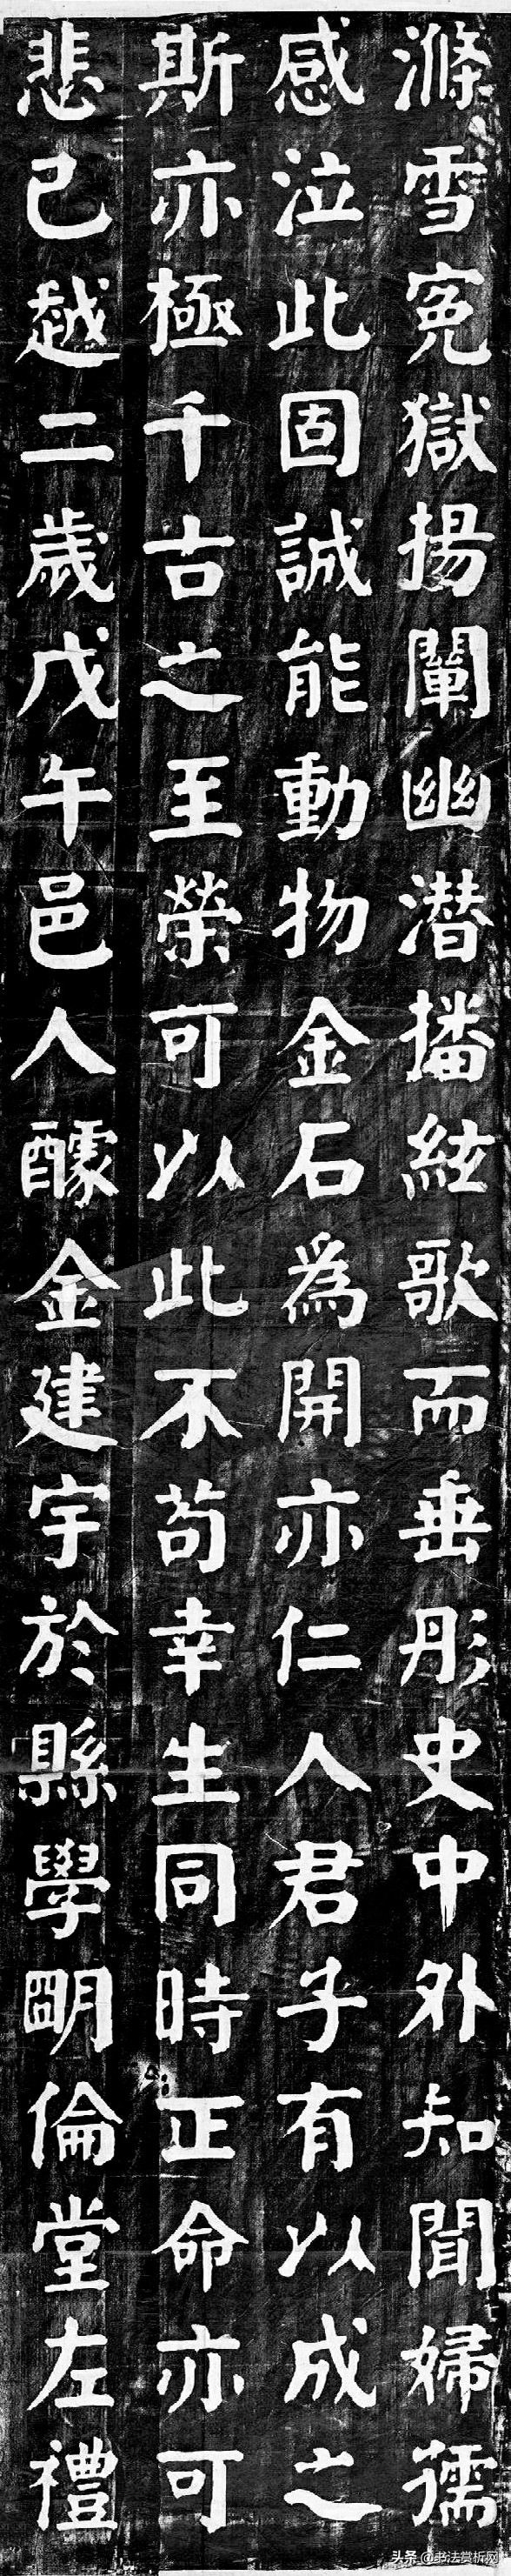 滌雪寃獄揚闡幽潛播絃歌而垂彤史中外知聞婦孺
感泣此固誠能動物金石為開亦仁人君子有以成之
斯亦極千古之至榮可以此不苟幸生同時正命亦可
悲已越二歲戊午邑人醵金建宇於縣學朙倫堂左禮
头条 @书法赏析网